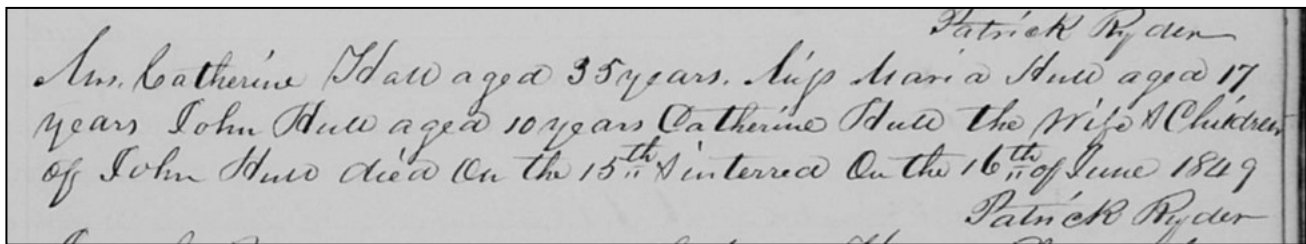 Patrick Ryder
Mrs. Catherine Hull aged 35 years. Miss Maria Hull aged 17
years John Hull aged 10 years Catherine Hull the Wife & Children
of John Hull died On the 15th & interred On the 16th of June 1849
Patrick Ryder